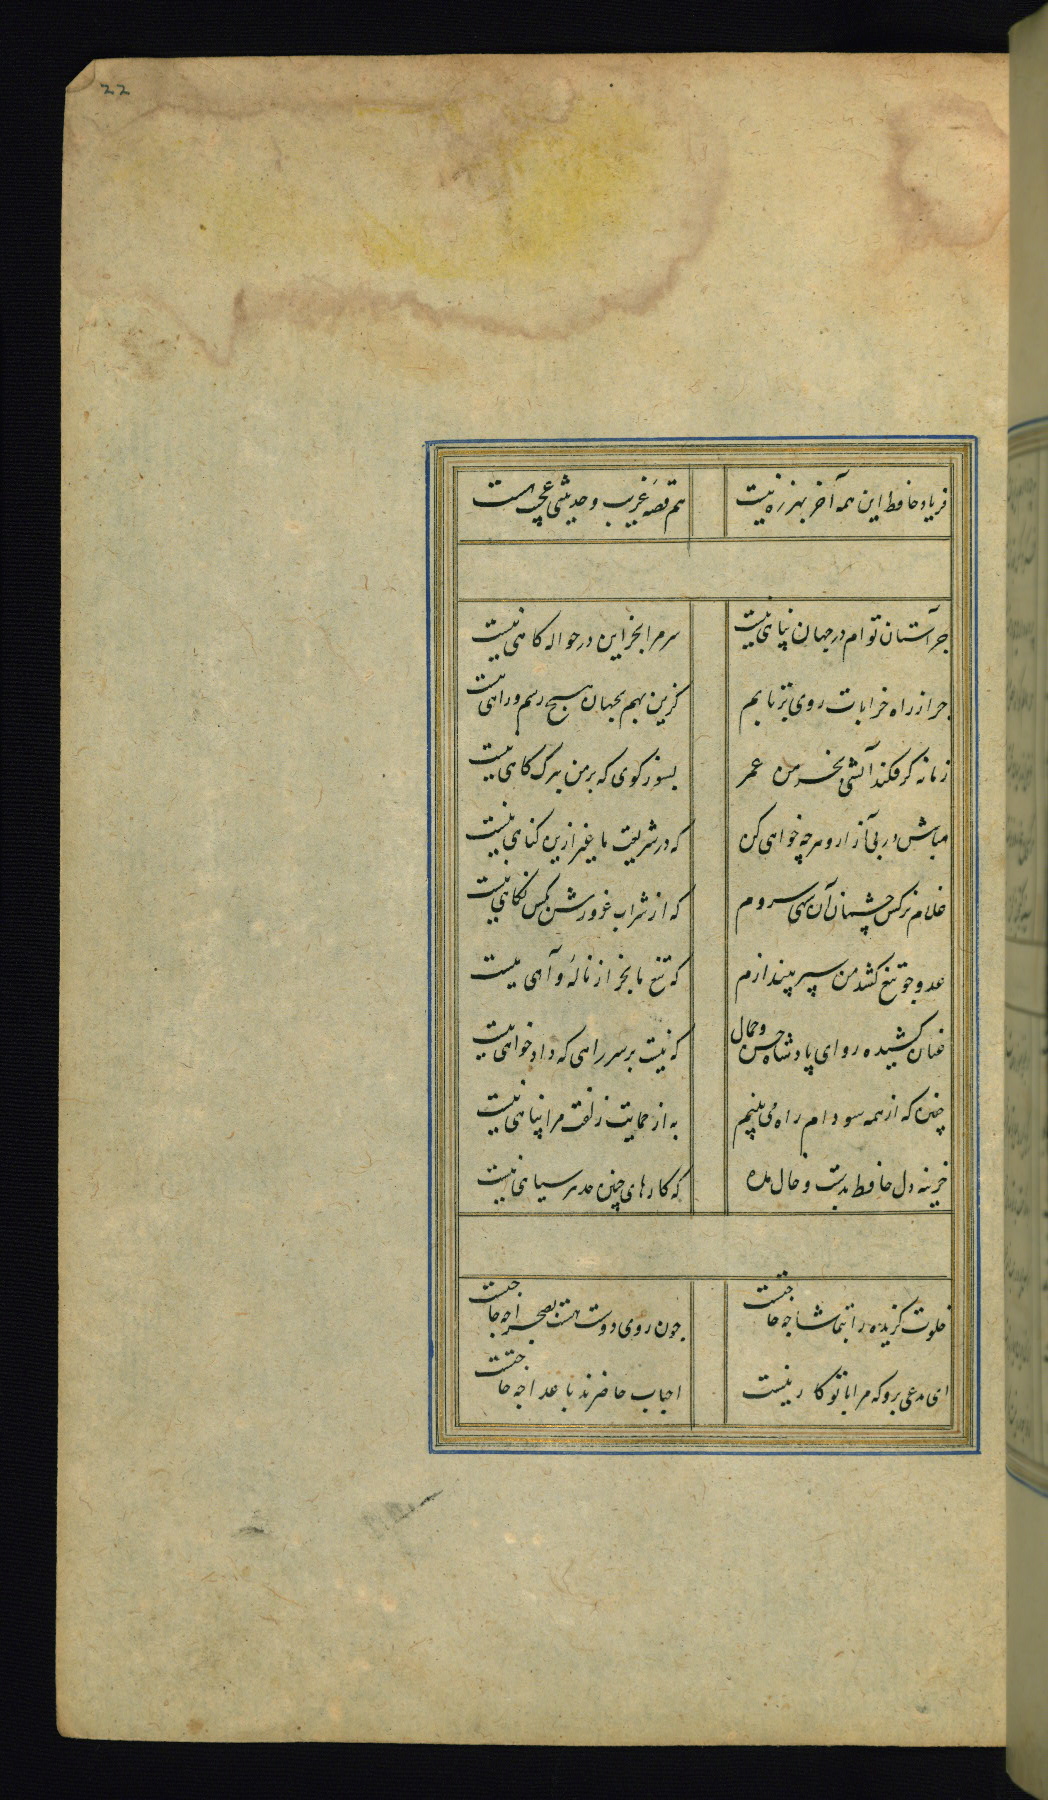 22
فریاد حافظ این همه آخر بهرزه نیست هم قصهٔ غریب و حدیثی عجیب هست
جز آستان توام در جهان پناهی نیست سر مرا بجز این در حواله کاهی نیست
چرا ز راه خرابات روی برتابم کزین بهم بجهان هیچ رسم و راهی نیست
زمانه کر فکند آتشی بخرمن عمر بسوز کوی که بر من ببرک کاهی نیست
مباش در پی آزار و هر چه خواهی کن که در شریعت ما غیر ازین کناهی نیست
غلام نرکس چشمان آن سهی سروم که از شراب غرورش بکس نکاهی نیست
عدو چو تیغ کشد من سپر بیندازم که تیغ ما بجز از نالهٔ و آهی نیست
عنان کشیده رو ای پادشاه حسن و جمال که نیست بر سر راهی که دادخواهی نیست
چنین که از همه سو دام راه می بینم به از حمایت زلفت مرا پناهی نیست
خزینه دل حافظ بدست و خال مده که کارهای چنین حد هر سیاهی نیست
خلوت کزیده را بتماشا چه حاجتست چون روی دوست هست بصحرا چه حاجتست
ای مدعی برو که مرا با تو کار نیست احباب حاضرند با عدا چه حاجتست